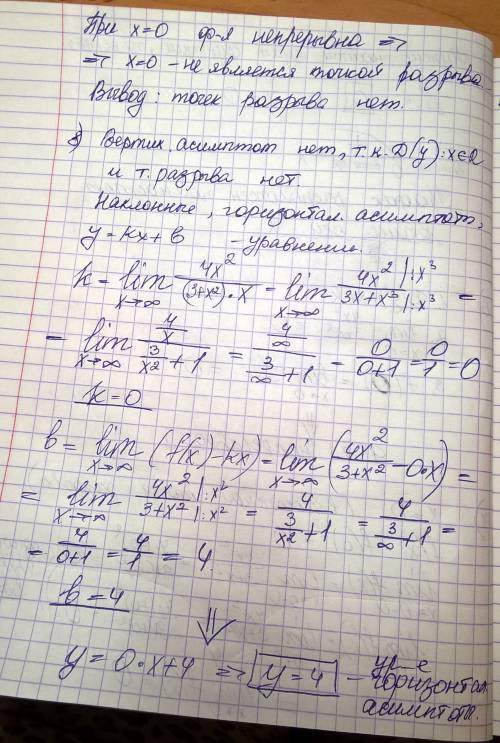 При x=0 ф-я непрерывна =>
=> x=0 - не является точкой разрыва.
Вывод: точек разрыва нет.
Вертик. асимптот нет, т.к. D(y): x∈R
и т. разрыва нет.
Наклонные, горизонтал. асимптоты,
y = kx + b - уравнение.
k = lim x→∞ 4x²/((3+x²)·x) = lim x→∞ 4x² |:x³ / 3x+x³ |:x³ =
= lim x→∞ (4/x)/(3/x²+1) = (4/∞)/(3/∞+1) = 0/(0+1) = 0/1 = 0
k=0
b = lim x→∞ (f(x)-kx) = lim x→∞ (4x²/(3+x²) - 0·x) =
= lim x→∞ 4x² |:x² / 3+x² |:x² = 4/(3/x²+1) = 4/(3/∞+1) =
= 4/(0+1) = 4/1 = 4
b=4
⇓
y = 0·x+4 => y=4 - ур-е
горизонтал.
асимптоты.